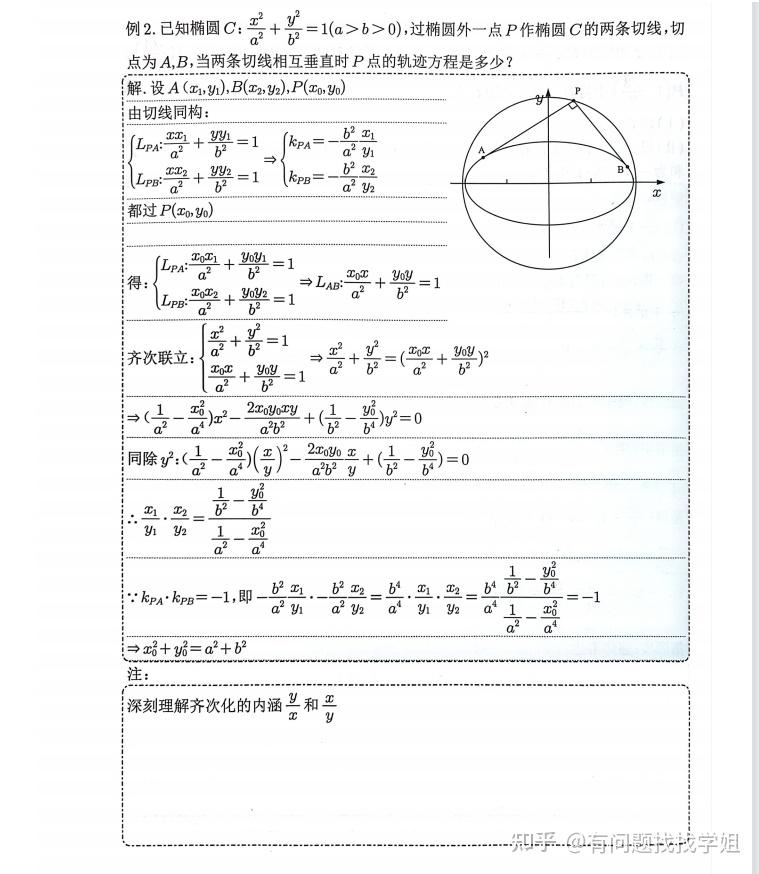 例2.已知椭圆C:x²/a²+y²/b²=1(a>b>0),过椭圆外一点P作椭圆C的两条切线,切
点为A,B,当两条切线相互垂直时P点的轨迹方程是多少?
解.设A(x₁,y₁),B(x₂,y₂),P(x₀,y₀)
由切线同构:
{L_PA:xx₁/a²+yy₁/b²=1 ⇒ {k_PA=-b²/a² x₁/y₁
{L_PB:xx₂/a²+yy₂/b²=1 {k_PB=-b²/a² x₂/y₂
都过P(x₀,y₀)
得:{L_PA:x₀x₁/a²+y₀y₁/b²=1
{L_PB:x₀x₂/a²+y₀y₂/b²=1 ⇒L_AB:x₀x/a²+y₀y/b²=1
齐次联立:{x²/a²+y²/b²=1
{x₀x/a²+y₀y/b²=1 ⇒x²/a²+y²/b²=(x₀x/a²+y₀y/b²)²
⇒(1/a²-x₀²/a⁴)x²-2x₀y₀xy/a²b²+(1/b²-y₀²/b⁴)y²=0
同除y²:(1/a²-x₀²/a⁴)(x/y)²-2x₀y₀/a²b² x/y+(1/b²-y₀²/b⁴)=0
∴x₁/y₁·x₂/y₂=(1/b²-y₀²/b⁴)/(1/a²-x₀²/a⁴)
∵k_PA·k_PB=-1,即-b²/a² x₁/y₁·-b²/a² x₂/y₂=b⁴/a⁴·x₁/y₁·x₂/y₂=b⁴/a⁴ (1/b²-y₀²/b⁴)/(1/a²-x₀²/a⁴)=-1
⇒x₀²+y₀²=a²+b²
y
P
A
B
x
注:
深刻理解齐次化的内涵y/x和x/y
知乎 @有问题找找学姐